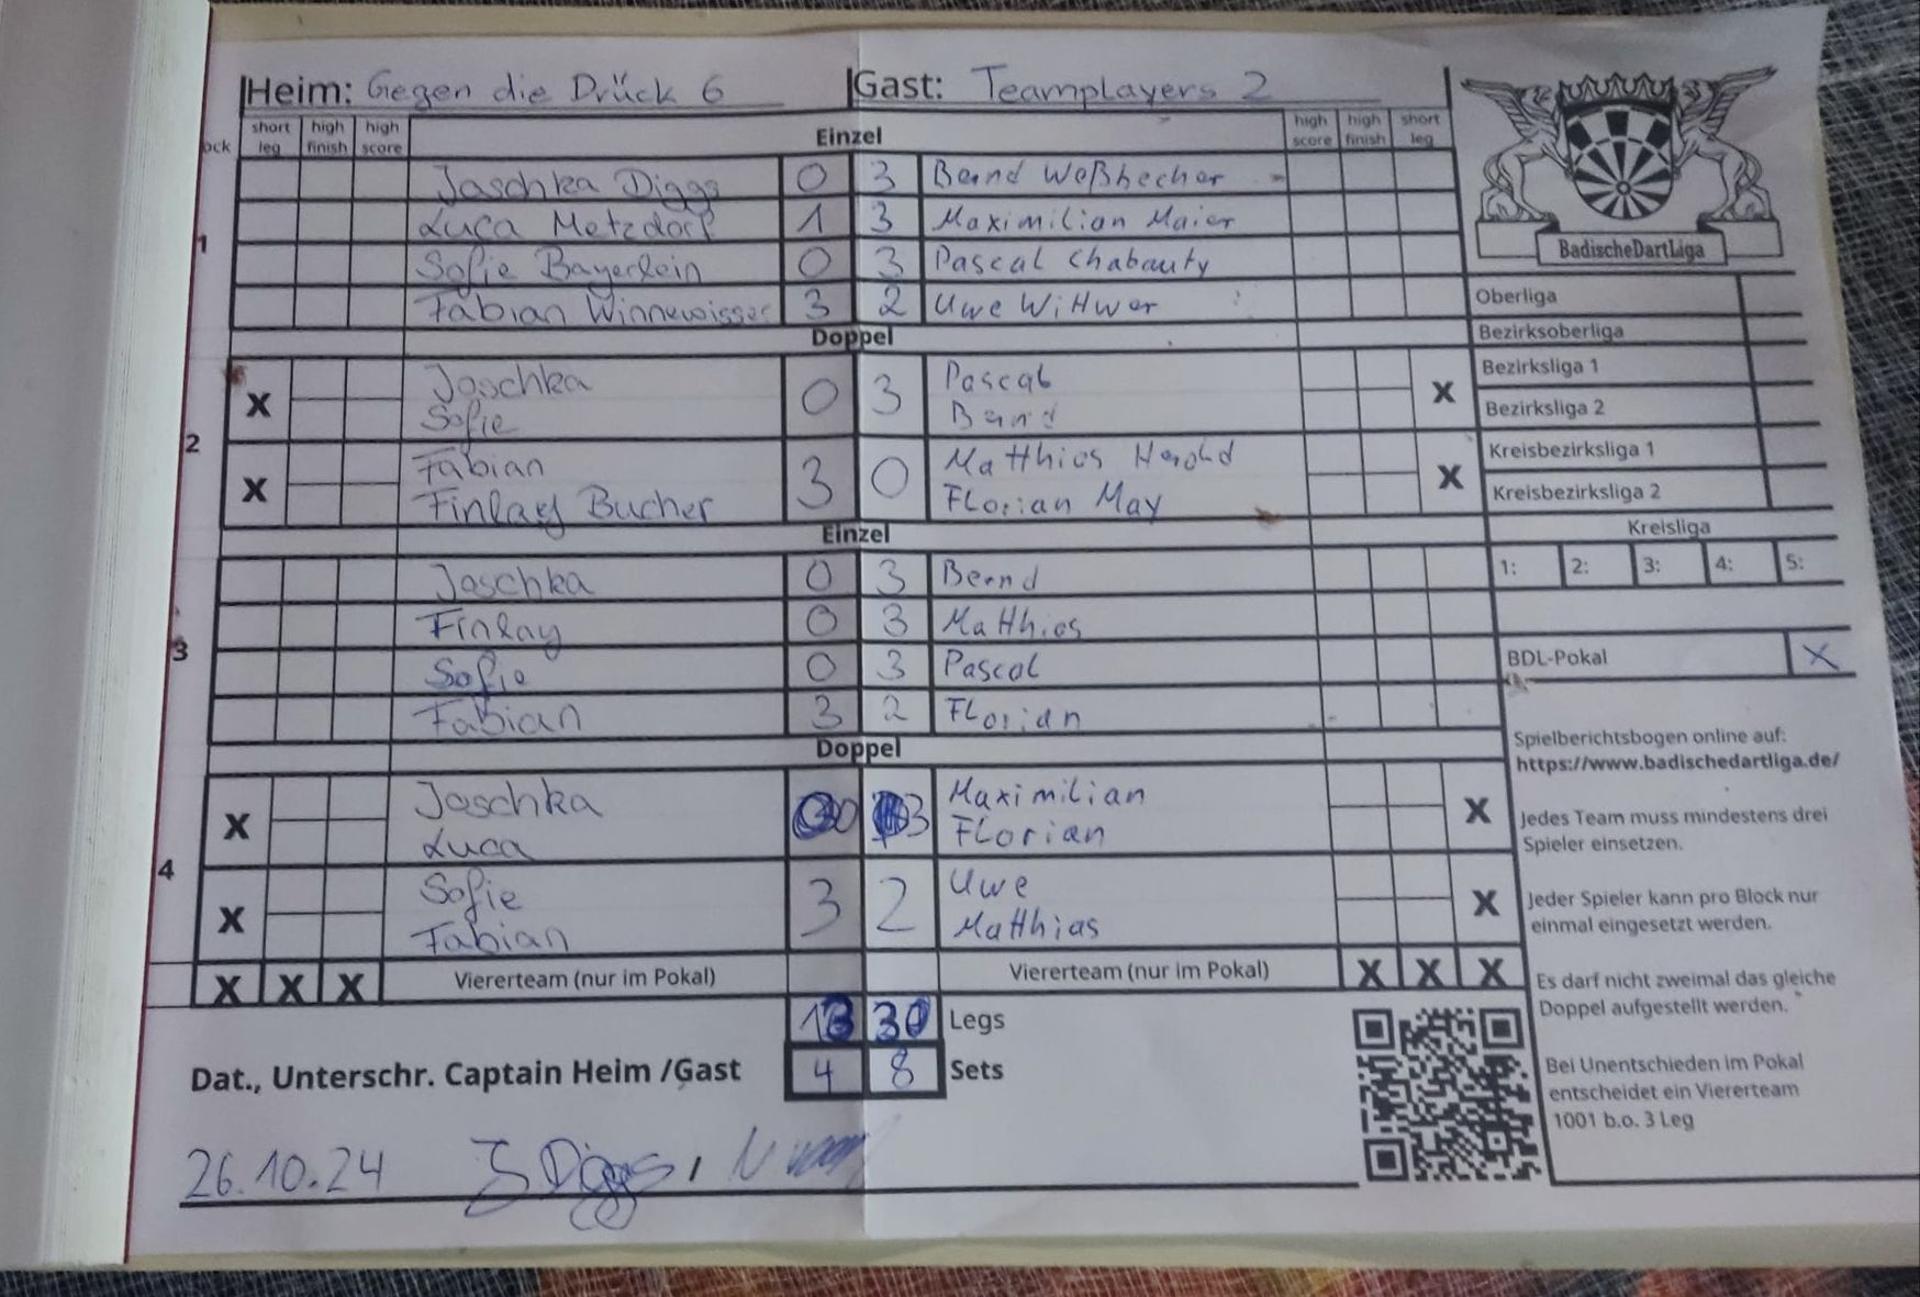 Heim: Gegen die Drück 6 Gast: Teamplayers 2
ock short leg high finish high score Einzel high score high finish short leg
Jaschka Diggs 0 3 Bernd Weßbecher
1 Luca Metzdorf 1 3 Maximilian Maier
Sofie Bayerlein 0 3 Pascal Chabauty
Fabian Winnewisser 3 2 Uwe Wittwer
Doppel
X Jaschka Sofie 0 3 Pascal Bernd X
2
X Fabian Finlay Bucher 3 0 Matthias Herold Florian May X
Einzel
Jaschka 0 3 Bernd
Finlay 0 3 Matthias
3
Sofie 0 3 Pascal
Fabian 3 2 Florian
Doppel
X Jaschka Luca 0 3 Maximilian Florian X
4
X Sofie Fabian 3 2 Uwe Matthias X
X X X Viererteam (nur im Pokal) Viererteam (nur im Pokal) X X X
13 30 Legs
Dat., Unterschr. Captain Heim /Gast 4 8 Sets
26.10.24 J Diggs,
BadischeDartLiga
Oberliga
Bezirksoberliga
Bezirksliga 1
Bezirksliga 2
Kreisbezirksliga 1
Kreisbezirksliga 2
Kreisliga
1: 2: 3: 4: 5:
BDL-Pokal X
Spielberichtsbogen online auf:
https://www.badischedartliga.de/
Jedes Team muss mindestens drei
Spieler einsetzen.
Jeder Spieler kann pro Block nur
einmal eingesetzt werden.
Es darf nicht zweimal das gleiche
Doppel aufgestellt werden.
Bei Unentschieden im Pokal
entscheidet ein Viererteam
1001 b.o. 3 Leg